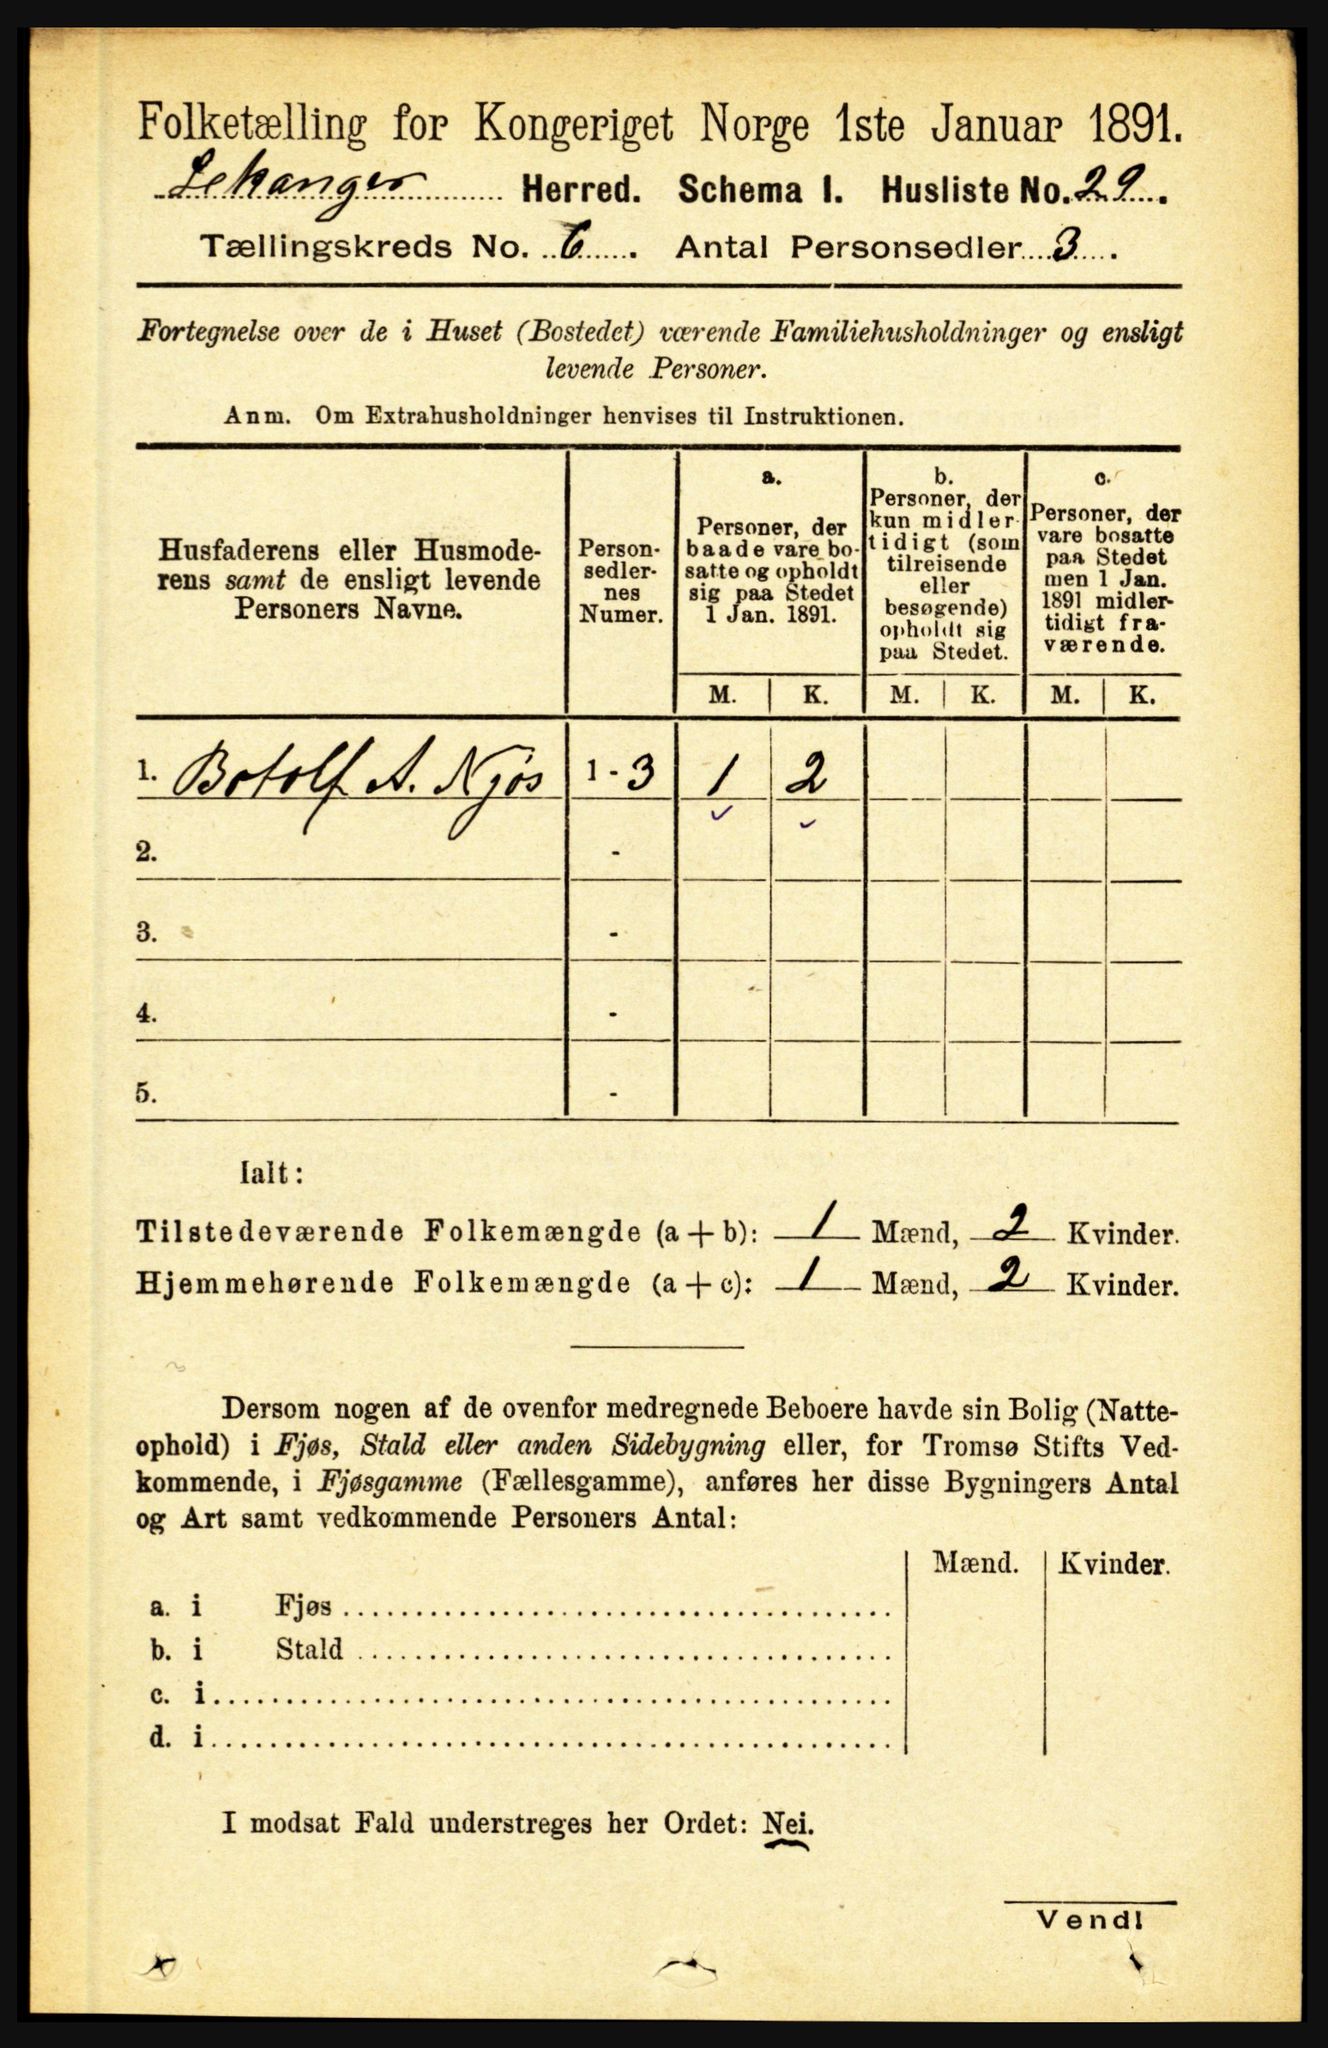 Folketælling for Kongeriget Norge 1ste Januar 1891.
Lekanger Herred. Schema I. Husliste No. 29.
Tællingskreds No. 6. Antal Personsedler 3.
Fortegnelse over de i Huset (Bostedet) værende Familiehusholdninger og ensligt
levende Personer.
Anm. Om Extrahusholdninger henvises til Instruktionen.
Husfaderens eller Husmode-
rens samt de ensligt levende
Personers Navne.
Person-
sedler-
nes
Numer.
a.
Personer, der
baade vare bo-
satte og opholdt
sig paa Stedet
1 Jan. 1891.
b.
Personer, der
kun midler-
tidigt (som
tilreisende
eller
besøgende)
opholdt sig
paa Stedet.
c.
Personer, der
vare bosatte
paa Stedet
men 1 Jan.
1891 midler-
tidigt fra-
værende.
M. K. M. K. M. K.
1. Botolf A. Njøs 1 - 3 1 2
2. -
3. -
4. -
5. -
Ialt:
Tilstedeværende Folkemængde (a + b): 1 Mænd, 2 Kvinder.
Hjemmehørende Folkemængde (a + c): 1 Mænd, 2 Kvinder.
Dersom nogen af de ovenfor medregnede Beboere havde sin Bolig (Natte-
ophold) i Fjøs, Stald eller anden Sidebygning eller, for Tromsø Stifts Ved-
kommende, i Fjøsgamme (Fællesgamme), anføres her disse Bygningers Antal
og Art samt vedkommende Personers Antal:
Mænd. Kvinder.
a. i Fjøs
b. i Stald
c. i
d. i
I modsat Fald understreges her Ordet: Nei.
Vend!